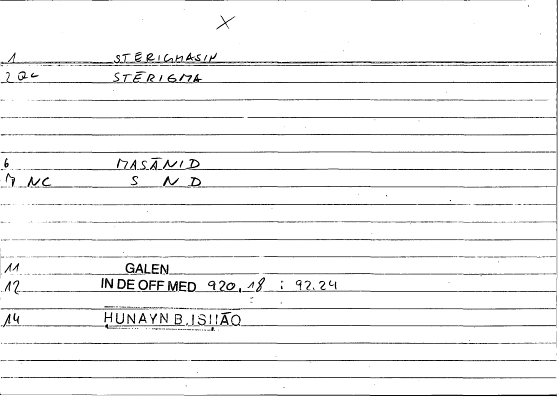 X
1 STĒRIGMASIN
2 QL STĒRIGMA
6 MASĀNID
7 NC S N D
11 GALEN
12 IN DE OFF MED 920,18 : 92.24
14 HUNAYN B. ISHĀQ